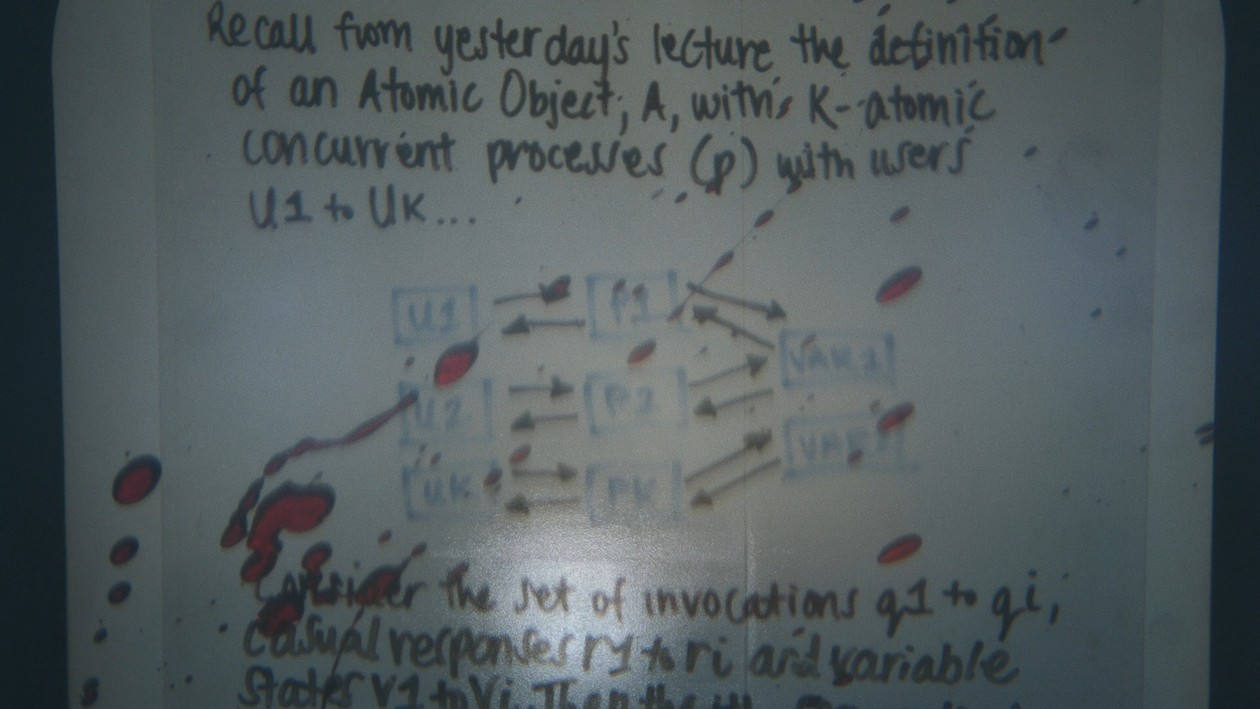 Recall from yesterday's lecture the definition
of an Atomic Object, A, with K-atomic
concurrent processes (p) with users
U1 to UK...
U1 P1
VAR1
U2 P2
UK PK
Consider the set of invocations q1 to qi,
casual responses r1 to ri and variable
states V1 to Vi. Then the